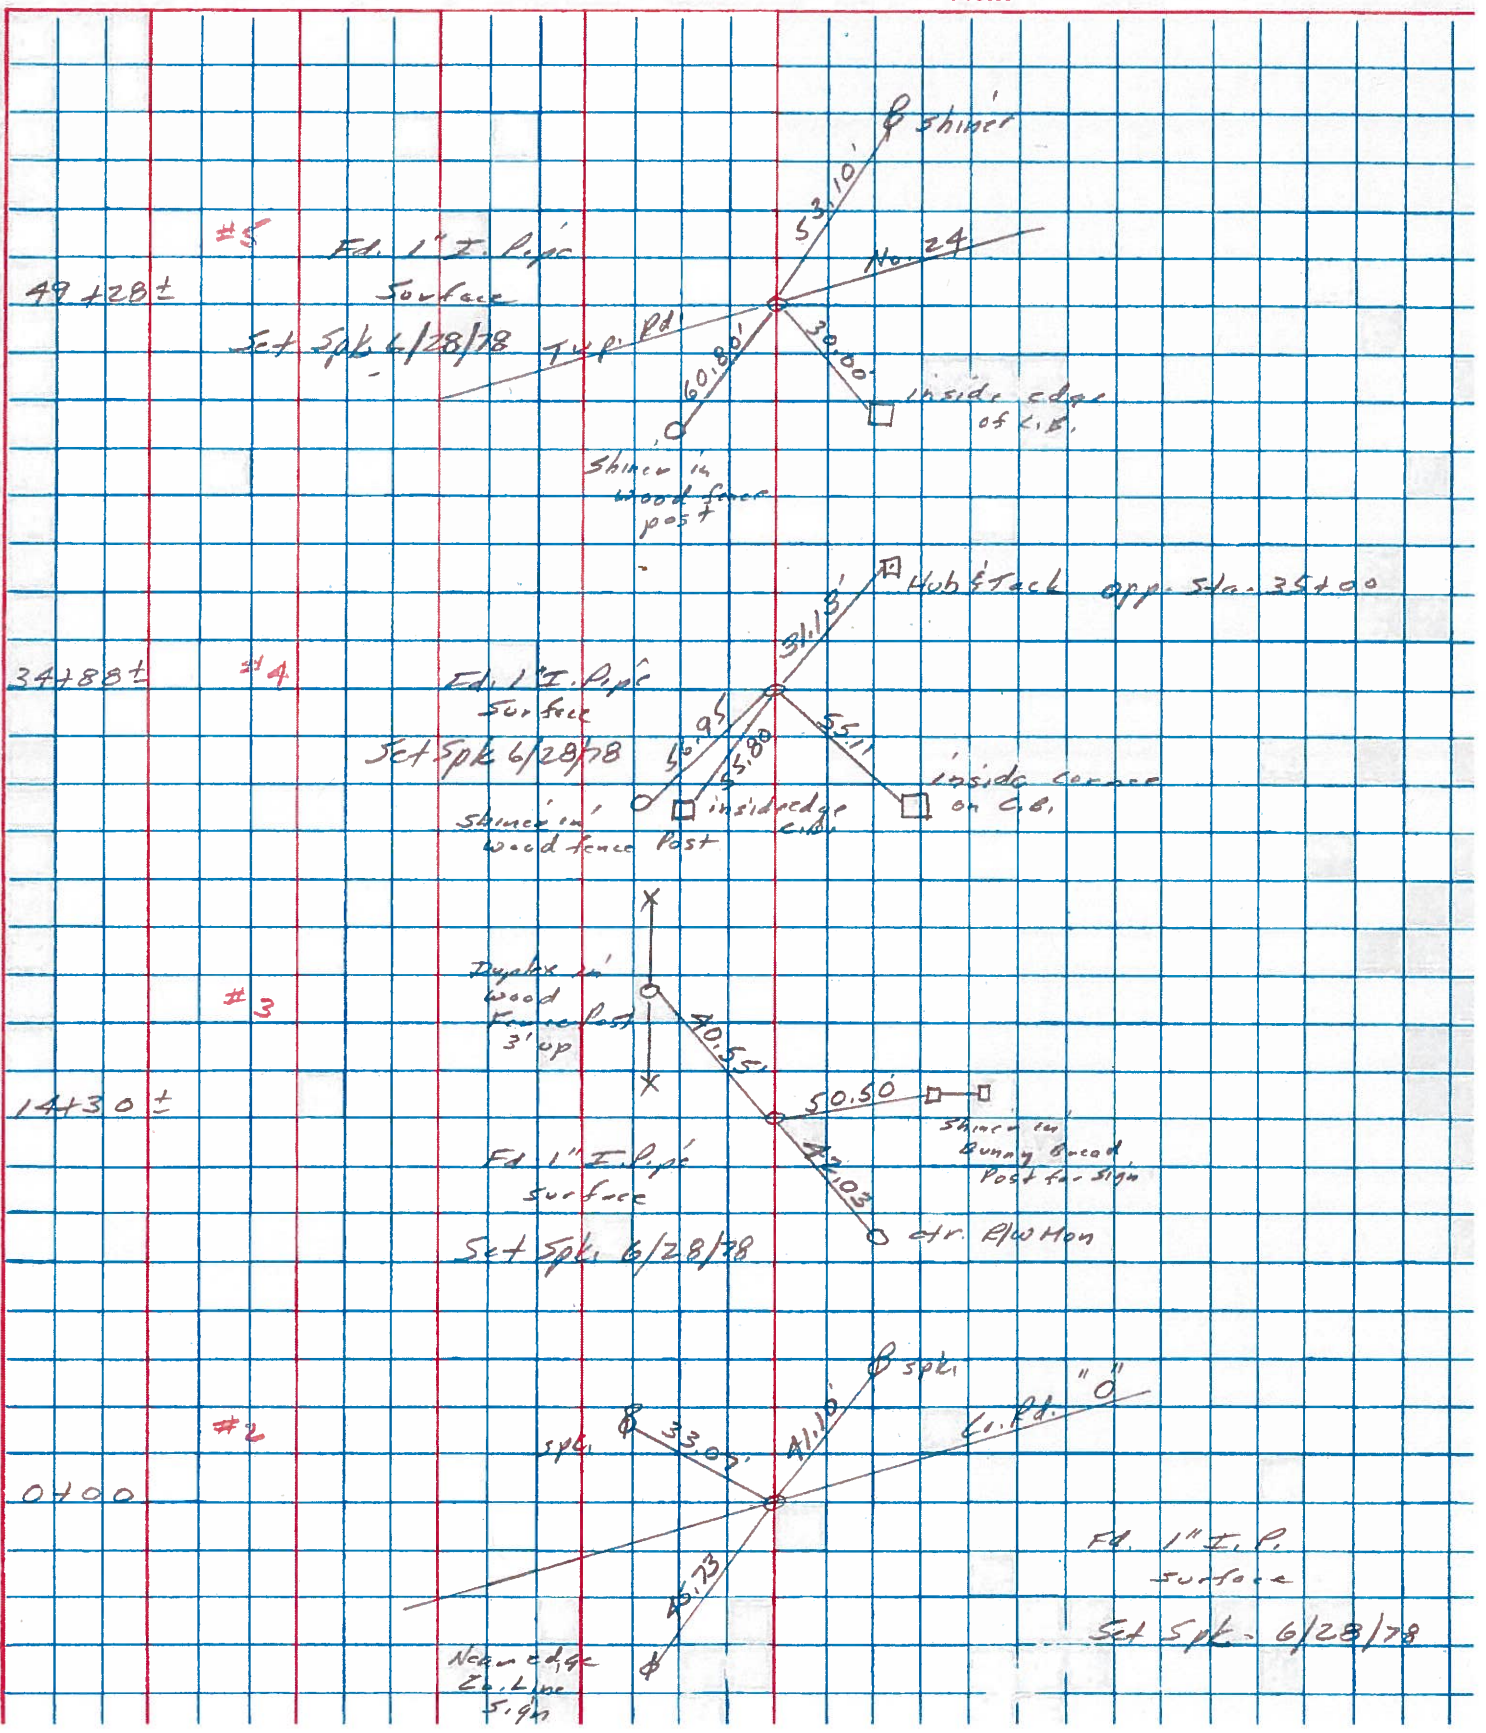 shiner
53.10'
#5
Fd. 1" I. Pipe
No. 24
49+28±
Surface
Set Spk. 6/28/78
Twp. Rd.
60.80'
30.00'
inside edge
of C.B.
Shiner in
wood fence
post
Hub & Tack opp. Sta. 35+00
31.13'
34+88±
#4
Fd. 1" I. Pipe
Surface
Set Spk 6/28/78
56.95
55.80
55.11
inside corner
on C.B.
inside edge
C.B.
Shiner in
wood fence Post
Duplex in
wood
Fence Post
3' up
#3
40.55'
14+30±
50.50'
Shiner in
Bunny Bread
Post for Sign
Fd 1" I. Pipe
Surface
42.03
Set Spk. 6/28/78
ctr. R/W Mon
spk.
#2
spk.
33.07'
41.10'
Co. Rd. "O"
0+00
Fd. 1" I. P.
Surface
.73
Set Spk. 6/28/78
Near edge
Co. Line
Sign